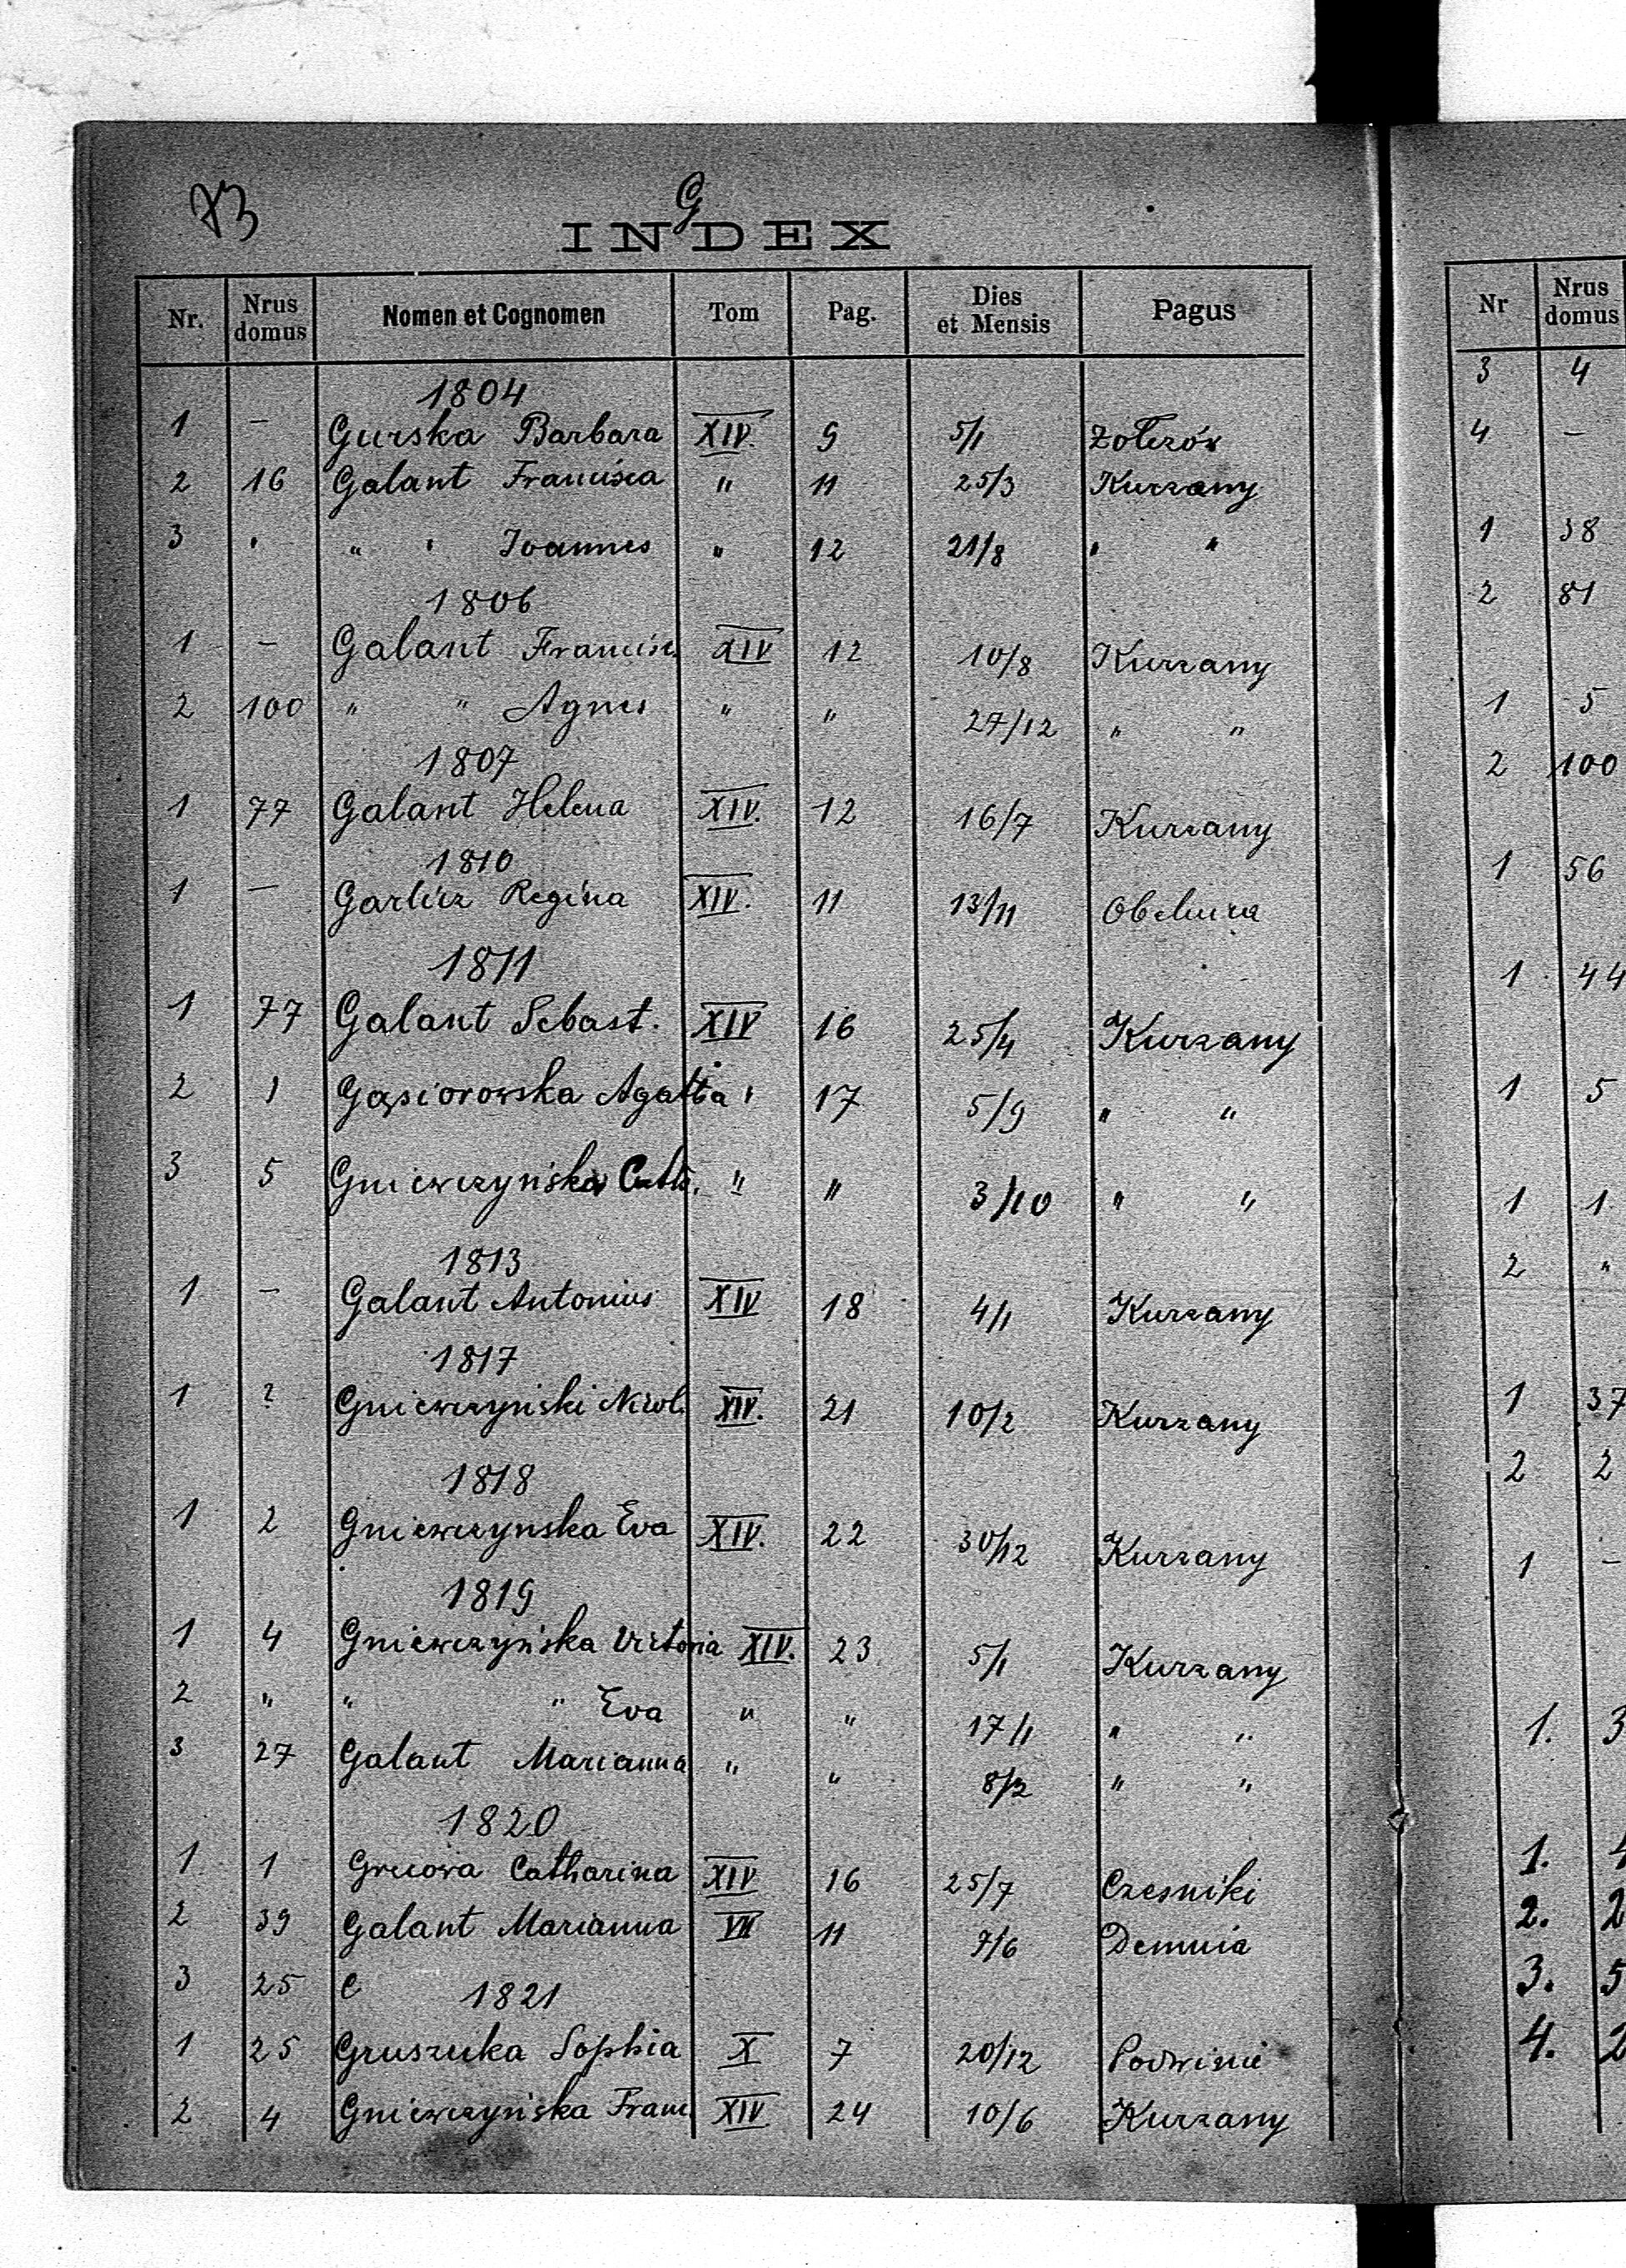 73
G
INDEX
Nr. Nrus domus Nomen et Cognomen Tom Pag. Dies et Mensis Pagus
1804
1 — Gurska Barbara XIV. 9 5/1 Żołczów
2 16 Galant Francisca " 11 25/3 Kurzany
3 " " " Joannes " 12 21/8 " "
1806
1 — Galant Francisc. XIV 12 10/8 Kurzany
2 100 " " Agnes " " 27/12 " "
1807
1 77 Galant Helena XIV. 12 16/7 Kurzany
1810
1 — Garlicz Regina XIV. 11 13/11 Obelnica
1811
1 77 Galant Sebast. XIV 16 25/4 Kurzany
2 1 Gąsiorowska Agatha " 17 5/9 " "
3 5 Gniewczyńska Cath. " " 3/10 " "
1813
1 — Galant Antonius XIV 18 4/1 Kurzany
1817
1 2 Gniewczyński Nicol. XIV. 21 10/2 Kurzany
1818
1 2 Gniewczynska Eva XIV. 22 30/12 Kurzany
1819
1 4 Gniewczyńska Victoria XIV. 23 5/1 Kurzany
2 " " " Eva " " 17/1 " "
3 27 Galant Marianna " " 8/2 " "
1820
1 1 Grucowa Catharina XIV 16 25/7 Czesniki
2 39 Galant Marianna VII 11 7/6 Demnia
3 25 C 1821
1 25 Gruszucka Sophia X 7 20/12 Podwinie
2 4 Gniewczyńska Franc. XIV 24 10/6 Kurzany
Nr Nrus domus
3 4
4 —
1 38
2 81
1 5
2 100
1 56
1 44
1 5
1 1
2 "
1 37
2 2
1 —
1. 3
1. 4
2. 2
3. 5
4. 2